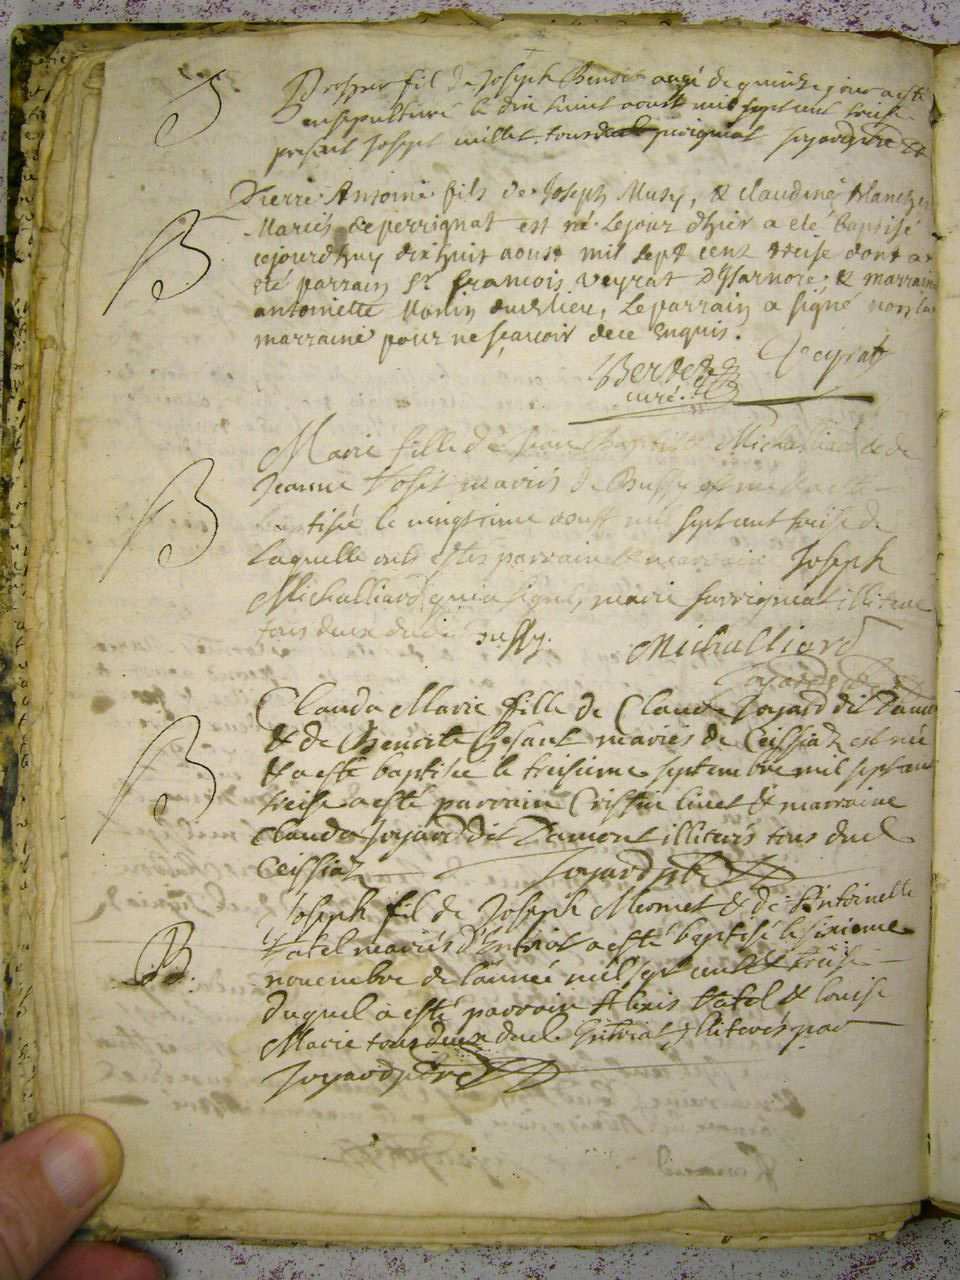 S
Prosper fil de Joseph Benoit aagé de quinze jour a esté
ensepulturé le dix huict aoust mil sept cent treise
present Joseph millet tous deux perignat Joyard pbre
B
Pierre Antoine fils de Joseph Musy, & Claudine Blanchet
Mariés de perrignat est né le jour d'hier a eté baptisé
cejourdhuy dix huit aoust mil sept cent treise dont a
eté parrain Sr francois Veyrat d'Isarnore, & marraine
antoinette dudlieu, Le parrain a signé non la
marraine pour ne sçavoir de ce Enquis.
Veyrat
curé
B
Marie fille de Jean Baptiste Michalliard & de
Jeanne mariés de Bussy est née & a esté
baptisée le vingtieme aoust mil sept cent treise de
laquelle ont estés parrain & marraine Joseph
Michalliard qui a signé, marie illiteree
tous deux dudit Bussy. Michalliard
Joyard pbre
B
Clauda Marie fille de Claude Joyard dit Lamont
& de Benoite mariés de Ceissiaz est née
& a esté baptisée le treisieme septembre mil sept cent
treise a esté parrain & marraine
Clauda Joyard dit Lamont illiterés tous dud
Ceissiaz Joyard pbre
B.
Joseph fil de Joseph Mermet & de Antoinette
Vatel mariés d'Intriat a esté baptisé le sixieme
novembre de l'année mil sept cent & treise
duquel a esté parrain Alexis Vatel & louise
Marie tous deux dud Intriat Illiterés par
Joyard pbre